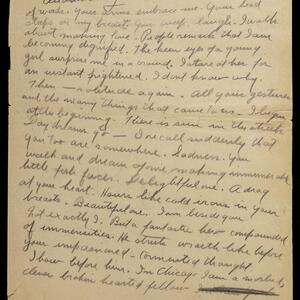 of wars. Your arms embrace me. Your head
sleeps on my breast. You weep. laugh. I walk
about making love. People remark that I am
becoming dignified. The keen eyes of a young
girl surprise me in a crowd. I stare at her for
an instant frightened. I don't know why.
Then — solitude again. All your gestures
and the many things that came to us. I begin
at the beginning. There is sun in the streets.
Day dreams go — I recall suddenly that
you too are somewhere. Sadness. You
walk and dream of me, making immense able
little faces. Delightful one. A drag
at your heart. Hours like cold irons in your
breasts. Beautiful one. I am beside you
not exactly I. But a fantastic hero compounded
of immensities. He struts wraith like before
your impassioned torments of thought.
I bow before him. In Chicago I am a morbidly
clever broken hearted fellow